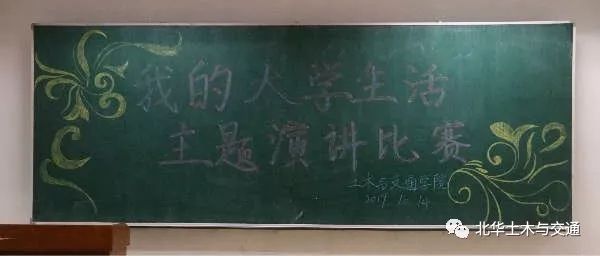 我的大学生活
主题演讲比赛
土木与交通学院
北华土木与交通